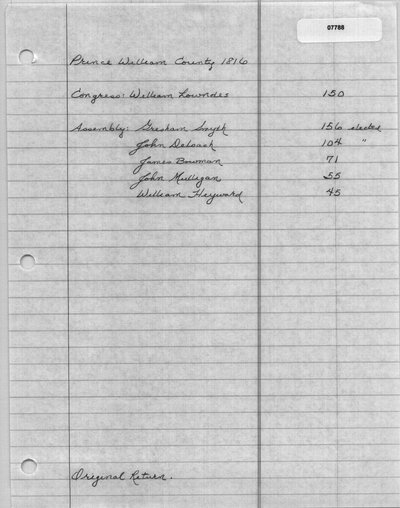 07788
Prince William County 1816
Congress: William Lowndes 150
Assembly: Gresham Smyth 156 elected
John Deloach 104 "
James Bowman 71
John Mulligan 55
William Heyward 45
Original Return.